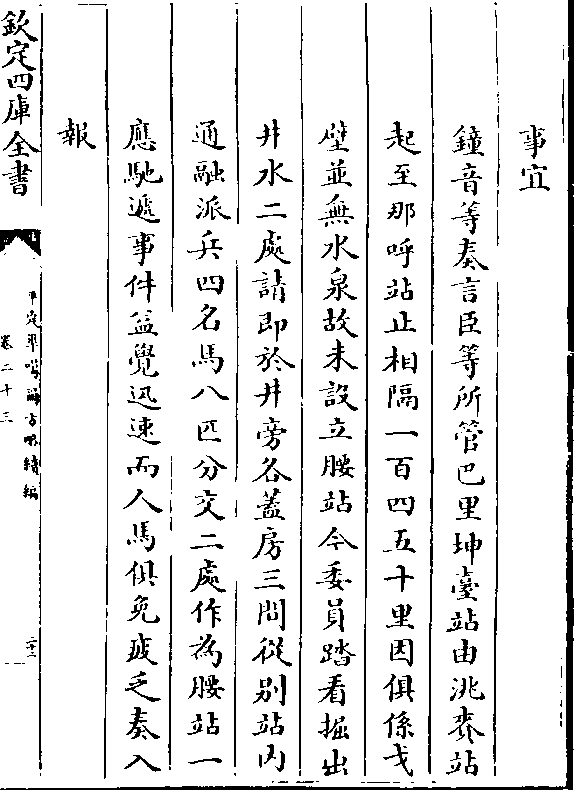 事宜
鐘音等奏言臣等所管巴里坤臺站由洮賚站
起至那呼站止相隔一百四五十里因俱係戈
壁並無水泉故未設立腰站今委員踏看掘出
井水二處請即於井旁各蓋房三間從别站内
通融派兵四名馬八匹分交二處作為腰站一
應馳遞事件益覺迅速而人馬俱免疲乏奏入
報
欽定四庫全書
平定準噶爾方略續編
卷二十三